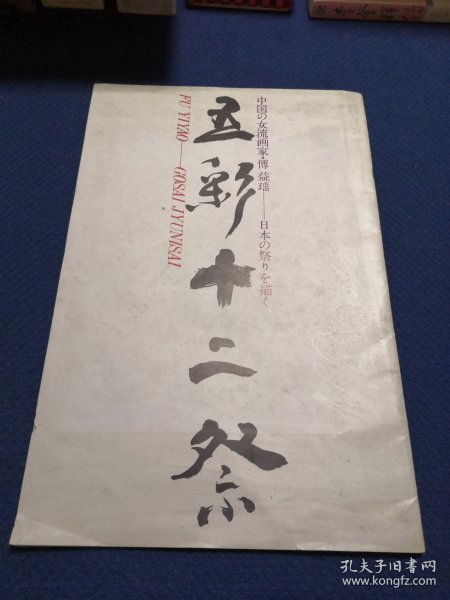 中国の女流画家・傅益瑶——日本の祭りを描く
五彩十二祭
FU YIYAO——GOSAI JYUNISAI
孔夫子旧书网
www.kongfz.com